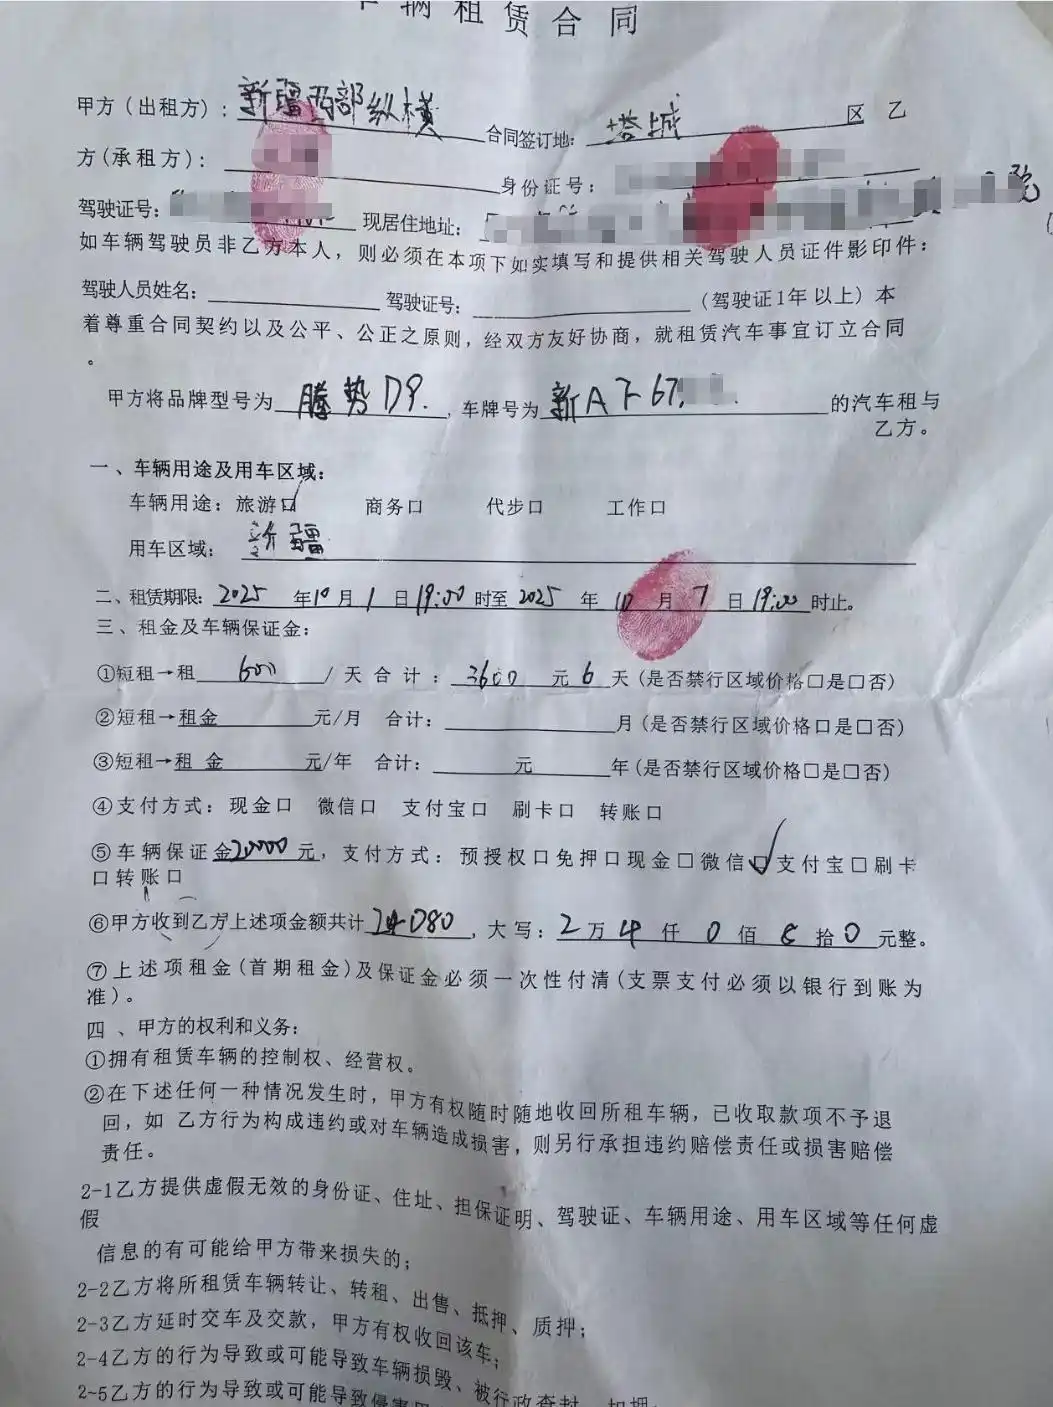 车辆租赁合同
甲方（出租方）：新疆西部纵横 合同签订地：塔城 区 乙
方（承租方）： 身份证号：
驾驶证号： 现居住地址：
如车辆驾驶员非乙方本人，则必须在本项下如实填写和提供相关驾驶人员证件影印件：
驾驶人员姓名： 驾驶证号： （驾驶证1年以上）本
着尊重合同契约以及公平、公正之原则，经双方友好协商，就租赁汽车事宜订立合同
。
甲方将品牌型号为 腾势D9. ，车牌号为 新AF67 的汽车租与
乙方。
一、车辆用途及用车区域：
车辆用途：旅游口 商务口 代步口 工作口
用车区域： 新疆
二、租赁期限：2025年10月1日19:00时至2025年10月7日19:00时止。
三、租金及车辆保证金：
①短租→租 600 /天合计：3600元6天(是否禁行区域价格口是口否)
②短租→租金 元/月 合计： 月(是否禁行区域价格口是口否)
③短租→租金 元/年 合计： 元 年(是否禁行区域价格口是口否)
④支付方式：现金口 微信口 支付宝口 刷卡口 转账口
⑤车辆保证金20000元，支付方式：预授权口免押口现金口微信口支付宝口刷卡
口转账口
⑥甲方收到乙方上述项金额共计24080，大写：2万4仟0佰8拾0元整。
⑦上述项租金(首期租金)及保证金必须一次性付清(支票支付必须以银行到账为
准)。
四、甲方的权利和义务：
①拥有租赁车辆的控制权、经营权。
②在下述任何一种情况发生时，甲方有权随时随地收回所租车辆，已收取款项不予退
回，如 乙方行为构成违约或对车辆造成损害，则另行承担违约赔偿责任或损害赔偿
责任。
2-1乙方提供虚假无效的身份证、住址、担保证明、驾驶证、车辆用途、用车区域等任何虚
假
信息的有可能给甲方带来损失的；
2-2乙方将所租赁车辆转让、转租、出售、抵押、质押；
2-3乙方延时交车及交款，甲方有权收回该车；
2-4乙方的行为导致或可能导致车辆损毁、被行政查封、扣押；
2-5乙方的行为导致或可能导致侵害